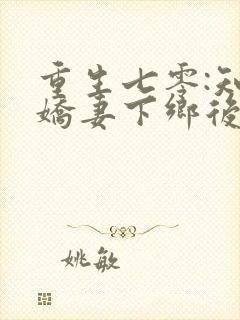 重生七零:知
嬌妻下鄉後
姚敏